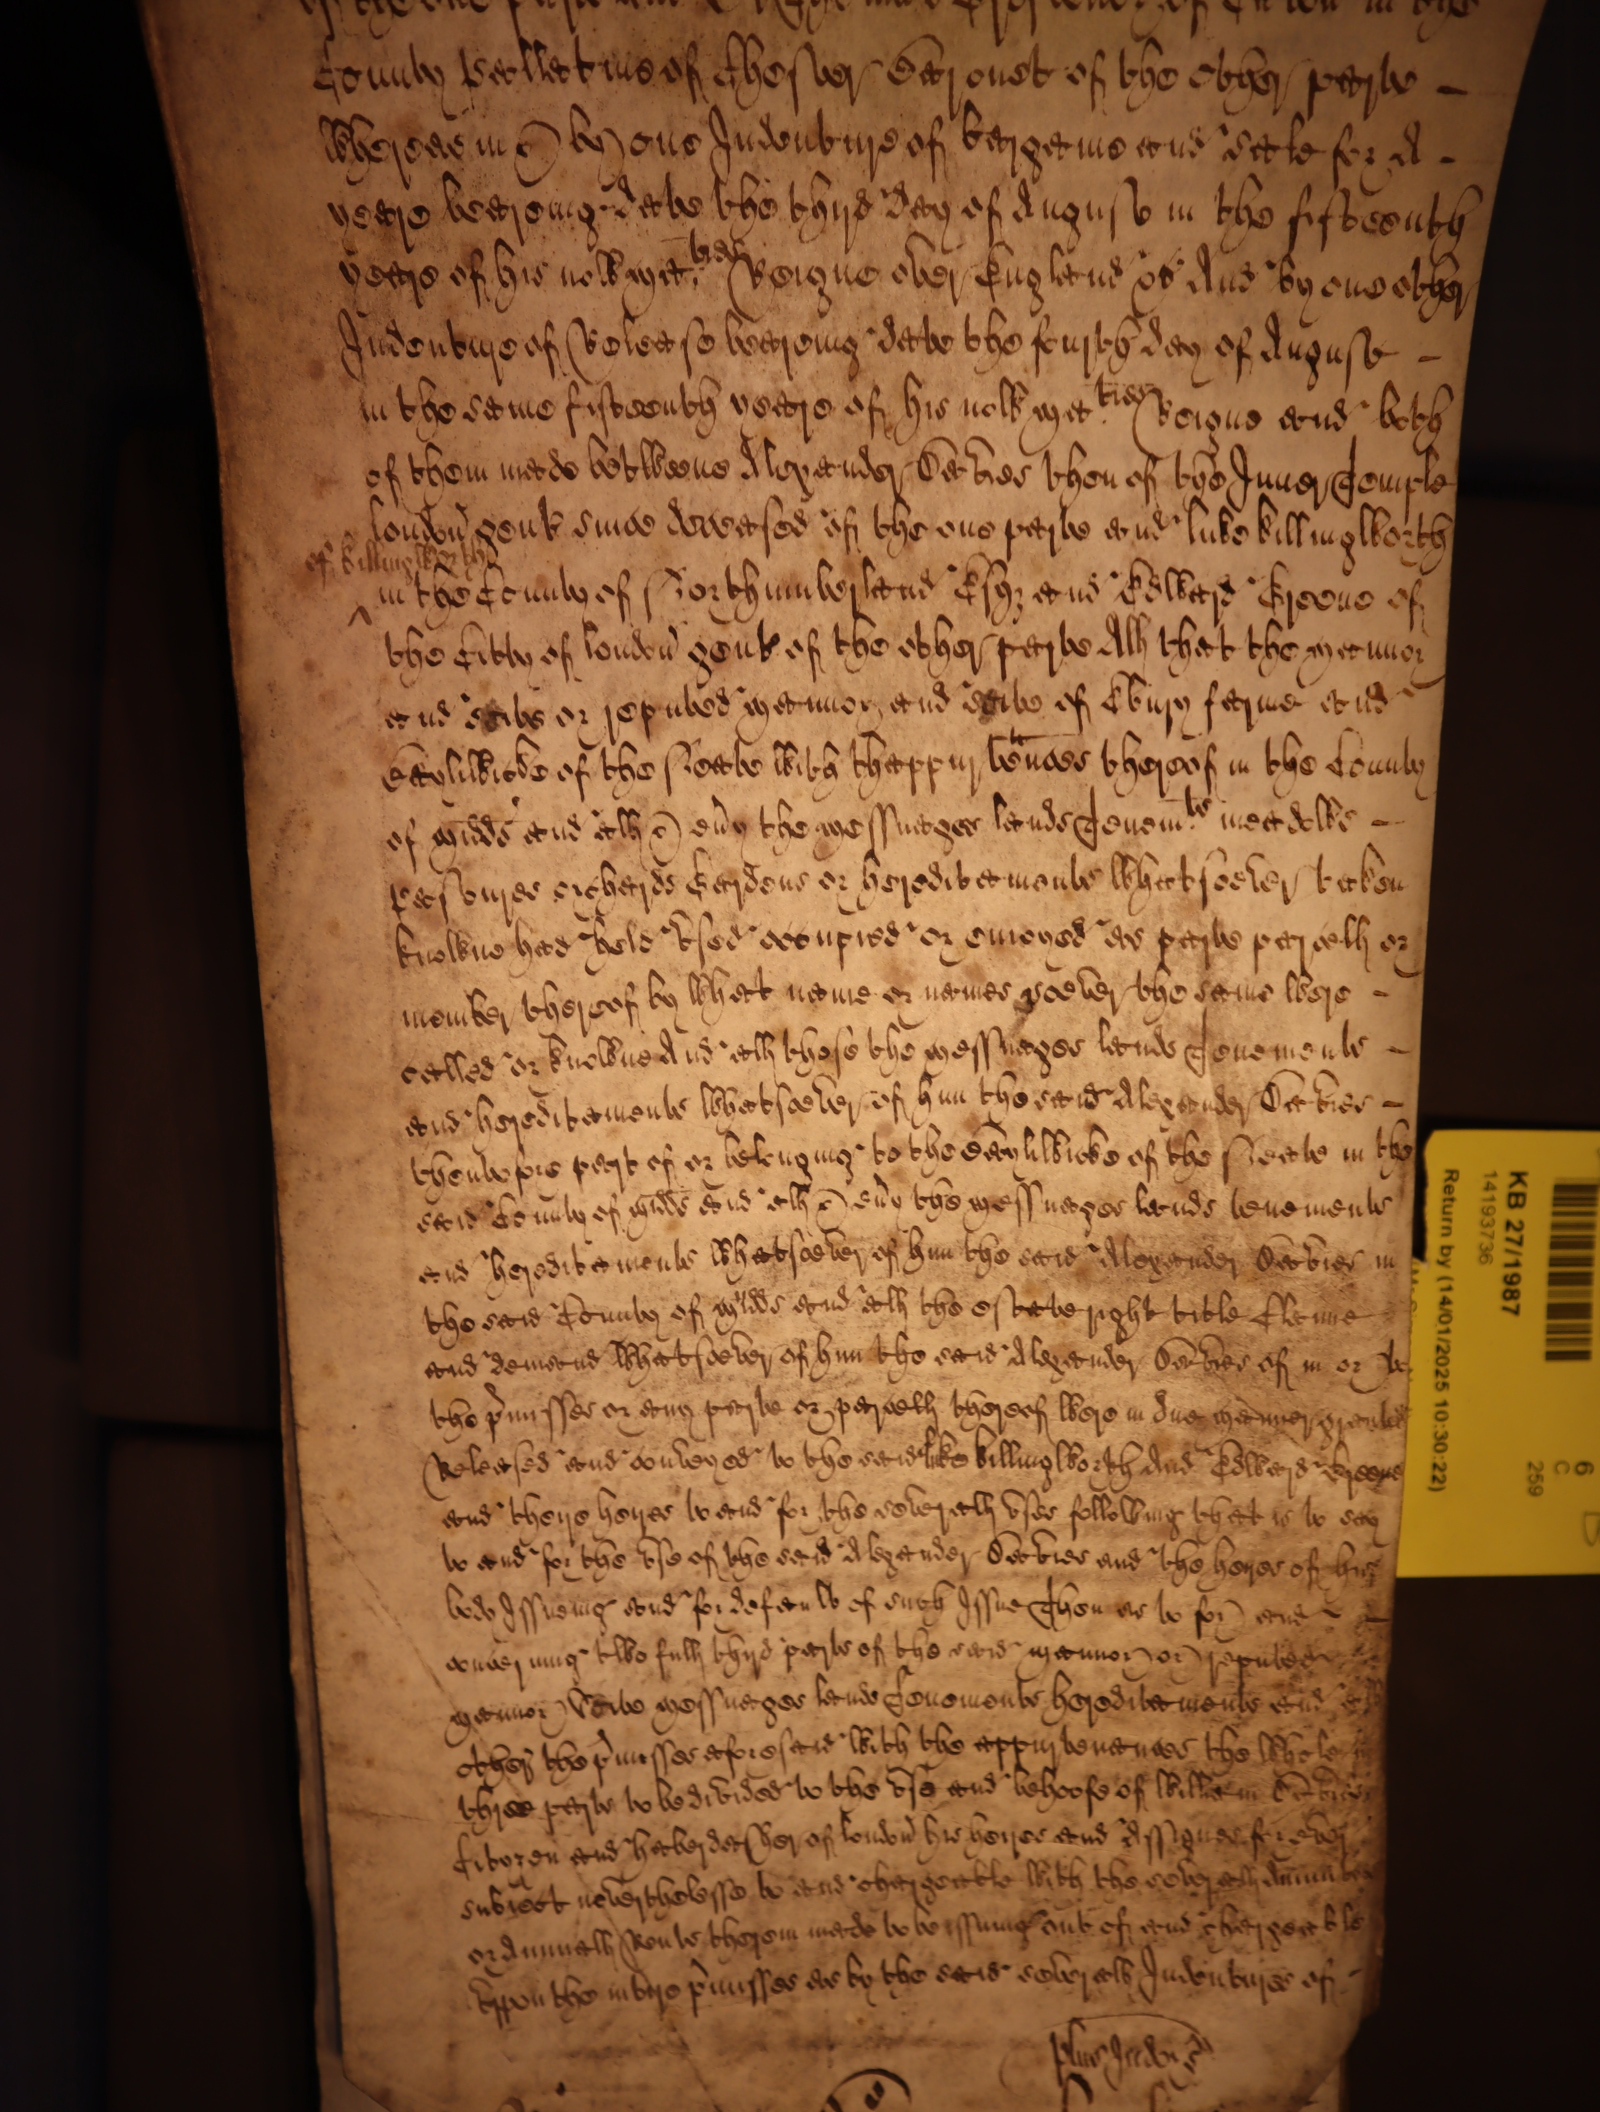 County Pallatine of Chester Baronet of the other parte
Whereas in & by one Indenture of bargaine and sale for A
yeare beareing date the third day of August in the fifteenth
yeare of his now Ma:ties Reigne over England &c And by one other
Indenture of Release beareing date the fourth day of August
in the same fifteenth yeare of his now Ma:ties Reigne and both
of them made betweene Alexander Davies then of the Inner Temple
London gent since deceased of the one parte and Luke Killingworth
of Killingworth
in the County of Northumberland Esqr and Edward Greene of
the Citty of London gent of the other parte All that the Mannor
and Scite or reputed Mannor and Scite of Ebury farme and
Bayliwicke of the Neate with thappurtennces thereof in the County
of Midds and all & evy the Messuages lands Tenemts meadows
Pastures orchards Gardens or hereditaments Whatsoever taken
knowne had held used occupied or enioyed as parte parcell or
member thereof by What name or names soever the same were
called or knowne And all those the Messuages lands Tenements
and hereditaments Whatsoever of him the said Alexander Davies
thentofore part of or belonging to the Bayliwicke of the Neate in the
said County of Midds and all & evy the Messuages lands tenements
and hereditaments Whatsoever of him the said Alexander Davies in
the said County of Midds and all the estate right title Clame
and demand Whatsoever of him the said Alexander Davies of in or to
the pmisses or any parte or parcell thereof were in due manner granted
Released and conveyed to the said Luke Killingworth And Edward Greene
and theire heires to and for the severall uses following that is to say
to and for the use of the said Alexander Davies and the heires of his
body Issueing and for default of such Issue Then as to for and
concerning two full third parts of the said Mannor or reputed
Mannor Scite Messuages lands Tenements hereditaments and all
other the pmisses aforesaid with the appurtenances the whole in
three parts to be divided to the use and behoofe of William Davies
Citizen and haberdasher of London his heires and Assignes for ever
subiect neverthelesse to and chargeable with the severall Annuities
or Annuall Rents therein made to be issuing out of and chargeable
Uppon the intire pmisses as by the said severall Indentures of
KB 27/1987
14193736
Return by (14/01/2025 10:30:22)
6
C
259